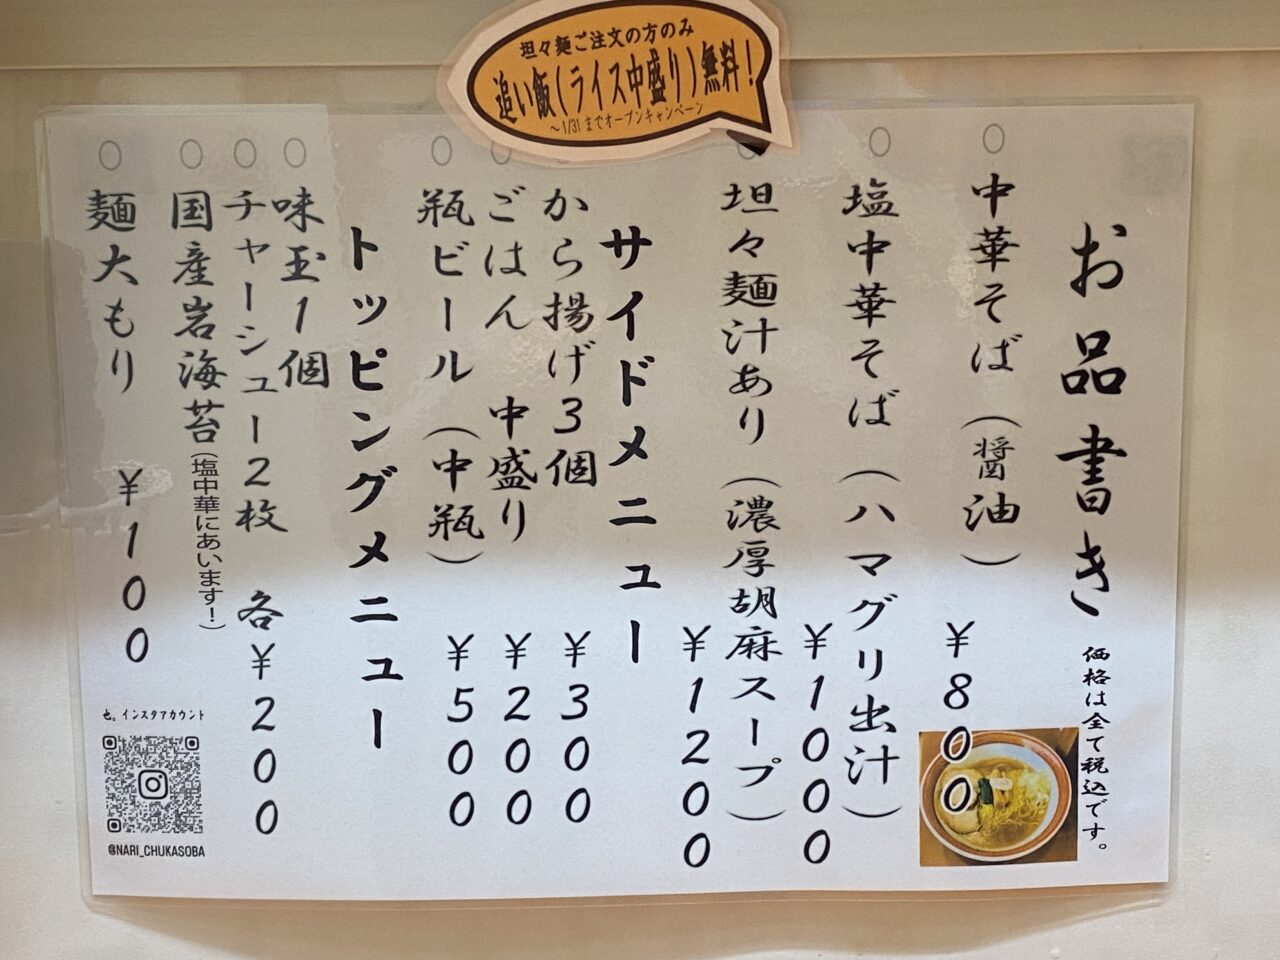 坦々麺ご注文の方のみ
追い飯(ライス中盛り)無料!
〜1/31までオープンキャンペーン
お品書き
価格は全て税込です。
○中華そば(醤油) ¥800
○塩中華そば(ハマグリ出汁) ¥1000
坦々麺汁あり(濃厚胡麻スープ) ¥1200
サイドメニュー
から揚げ3個 ¥300
ごはん 中盛り ¥200
○瓶ビール(中瓶) ¥500
トッピングメニュー
○味玉1個
○チャーシュー2枚 各¥200
○国産岩海苔(塩中華にあいます!)
○麺大もり ¥100
也。インスタアカウント
@NARI_CHUKASOBA